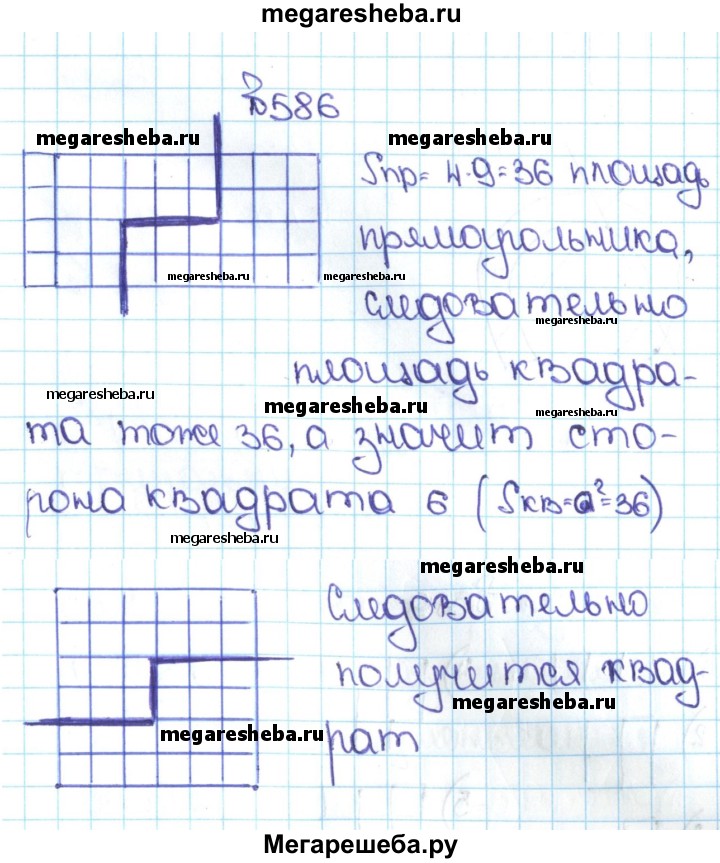 megaresheba.ru
№586
megaresheba.ru
megaresheba.ru
Sпр= 4·9=36 площадь
прямоугольника,
megaresheba.ru
megaresheba.ru
следовательно
megaresheba.ru
площадь квадра-
megaresheba.ru
megaresheba.ru
megaresheba.ru
та тоже 36, а значит сто-
рона квадрата 6 (Sкв=a²=36)
megaresheba.ru
megaresheba.ru
Следовательно
получится квад-
megaresheba.ru
megaresheba.ru
рат
Мегарешеба.ру